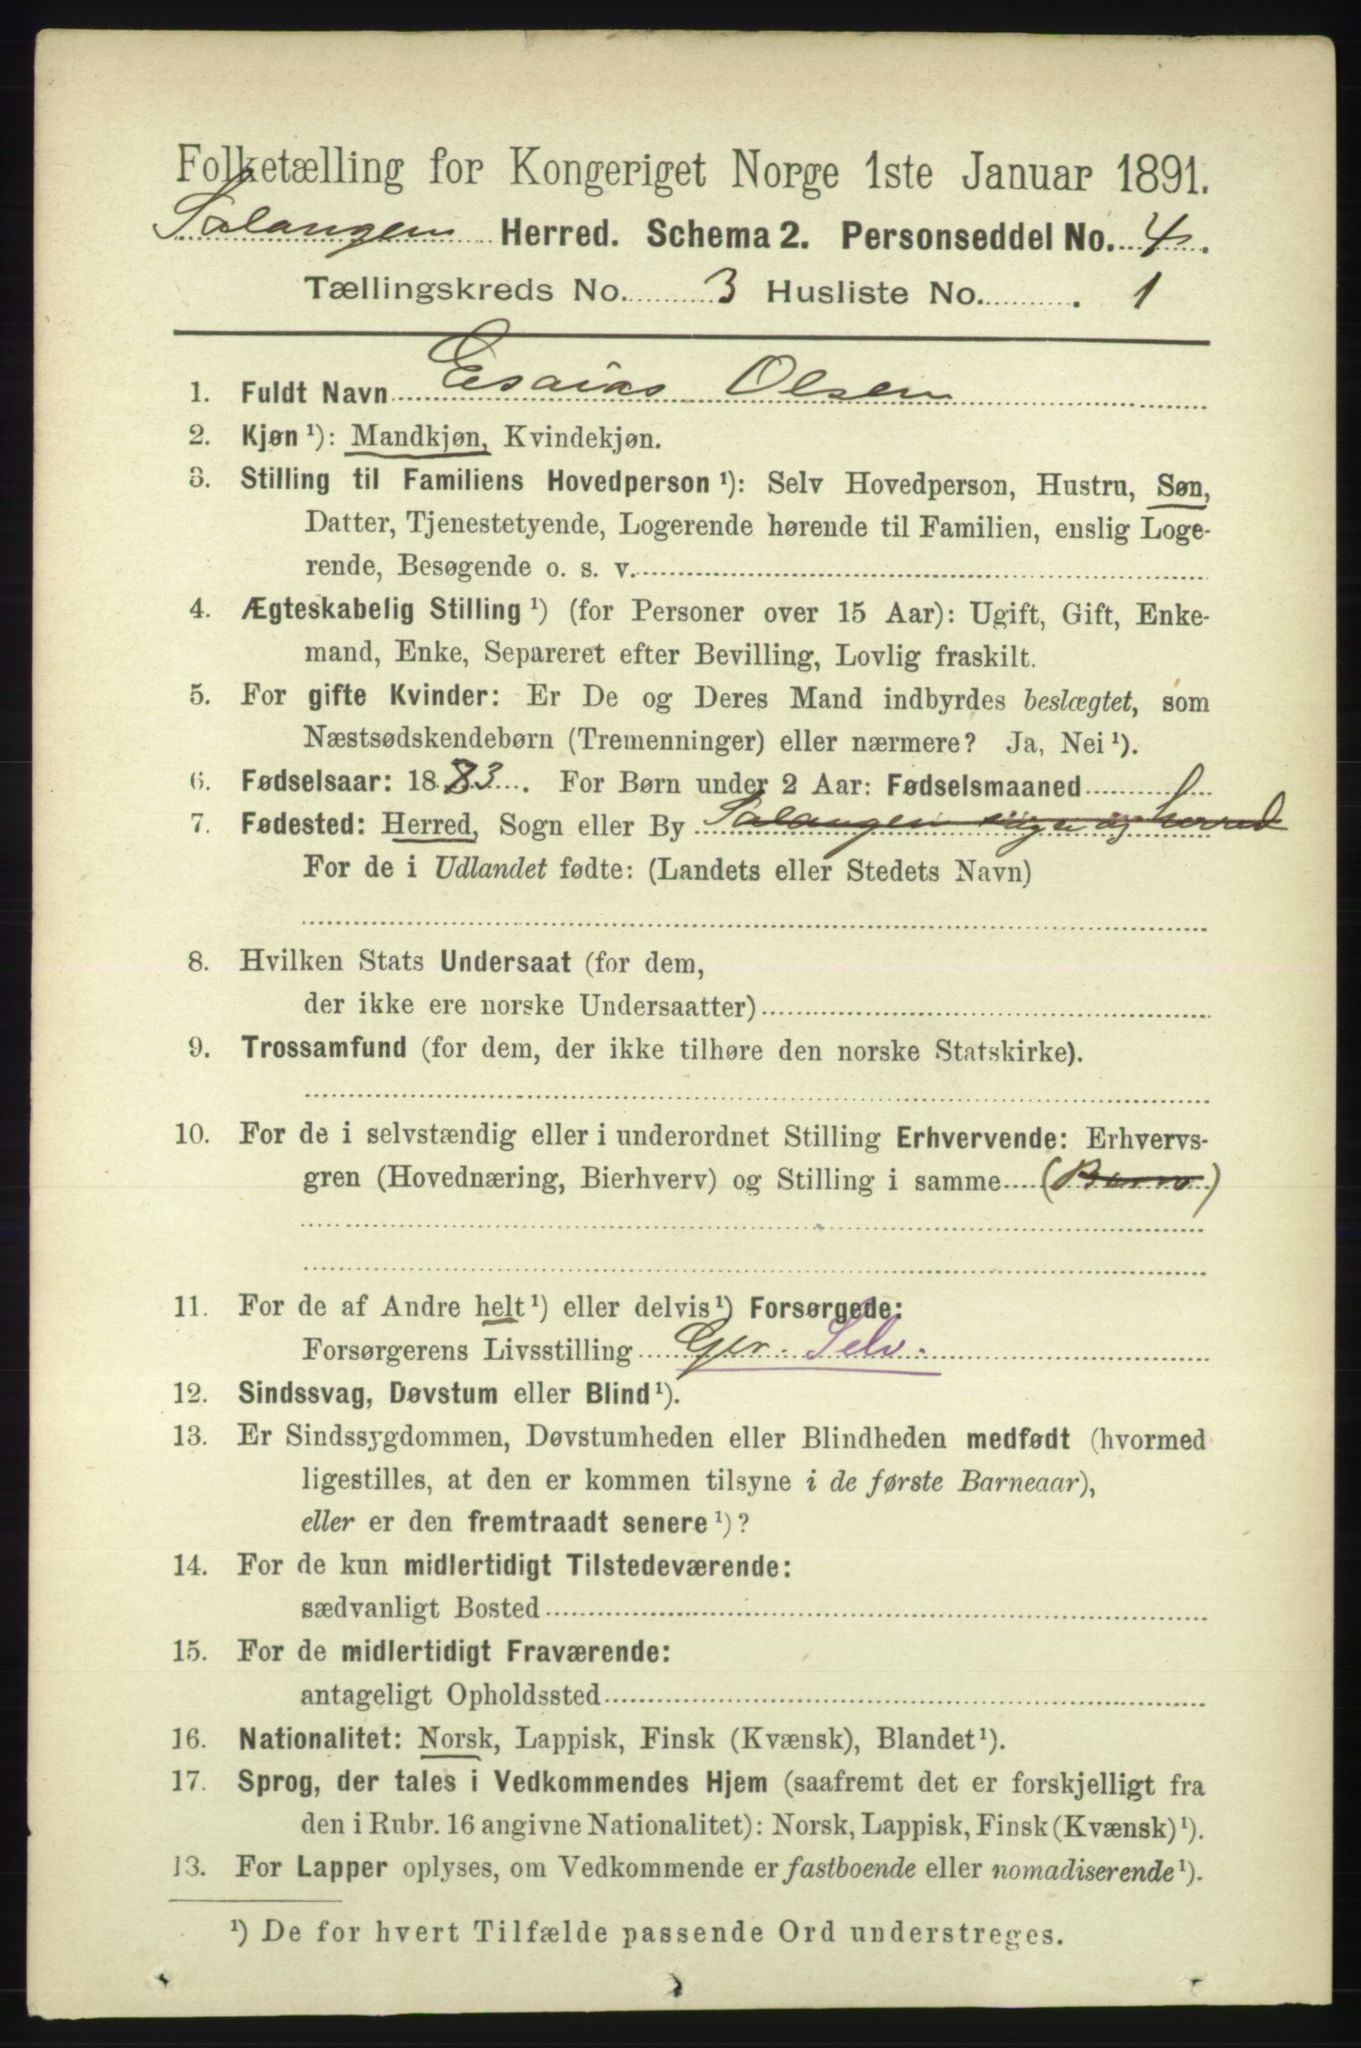 Folketælling for Kongeriget Norge 1ste Januar 1891.
Salangen Herred. Schema 2. Personseddel No. 4.
Tællingskreds No. 3 Husliste No. 1
1. Fuldt Navn Esaias Olsen
2. Kjøn ¹): Mandkjøn, Kvindekjøn.
3. Stilling til Familiens Hovedperson ¹): Selv Hovedperson, Hustru, Søn,
Datter, Tjenestetyende, Logerende hørende til Familien, enslig Loge-
rende, Besøgende o. s. v.
4. Ægteskabelig Stilling ¹) (for Personer over 15 Aar): Ugift, Gift, Enke-
mand, Enke, Separeret efter Bevilling, Lovlig fraskilt.
5. For gifte Kvinder: Er De og Deres Mand indbyrdes beslægtet, som
Næstsødskendebørn (Tremenninger) eller nærmere? Ja, Nei ¹).
6. Fødselsaar: 1883. For Børn under 2 Aar: Fødselsmaaned
7. Fødested: Herred, Sogn eller By Salangen sogn og herred
For de i Udlandet fødte: (Landets eller Stedets Navn)
8. Hvilken Stats Undersaat (for dem,
der ikke ere norske Undersaatter)
9. Trossamfund (for dem, der ikke tilhøre den norske Statskirke).
10. For de i selvstændig eller i underordnet Stilling Erhvervende: Erhvervs-
gren (Hovednæring, Bierhverv) og Stilling i samme (Barn)
11. For de af Andre helt ¹) eller delvis ¹) Forsørgede:
Forsørgerens Livsstilling Gbr. Selv.
12. Sindssvag, Døvstum eller Blind ¹).
13. Er Sindssygdommen, Døvstumheden eller Blindheden medfødt (hvormed
ligestilles, at den er kommen tilsyne i de første Barneaar),
eller er den fremtraadt senere ¹)?
14. For de kun midlertidigt Tilstedeværende:
sædvanligt Bosted
15. For de midlertidigt Fraværende:
antageligt Opholdssted
16. Nationalitet: Norsk, Lappisk, Finsk (Kvænsk), Blandet ¹).
17. Sprog, der tales i Vedkommendes Hjem (saafremt det er forskjelligt fra
den i Rubr. 16 angivne Nationalitet): Norsk, Lappisk, Finsk (Kvænsk) ¹).
13. For Lapper oplyses, om Vedkommende er fastboende eller nomadiserende ¹).
¹) De for hvert Tilfælde passende Ord understreges.